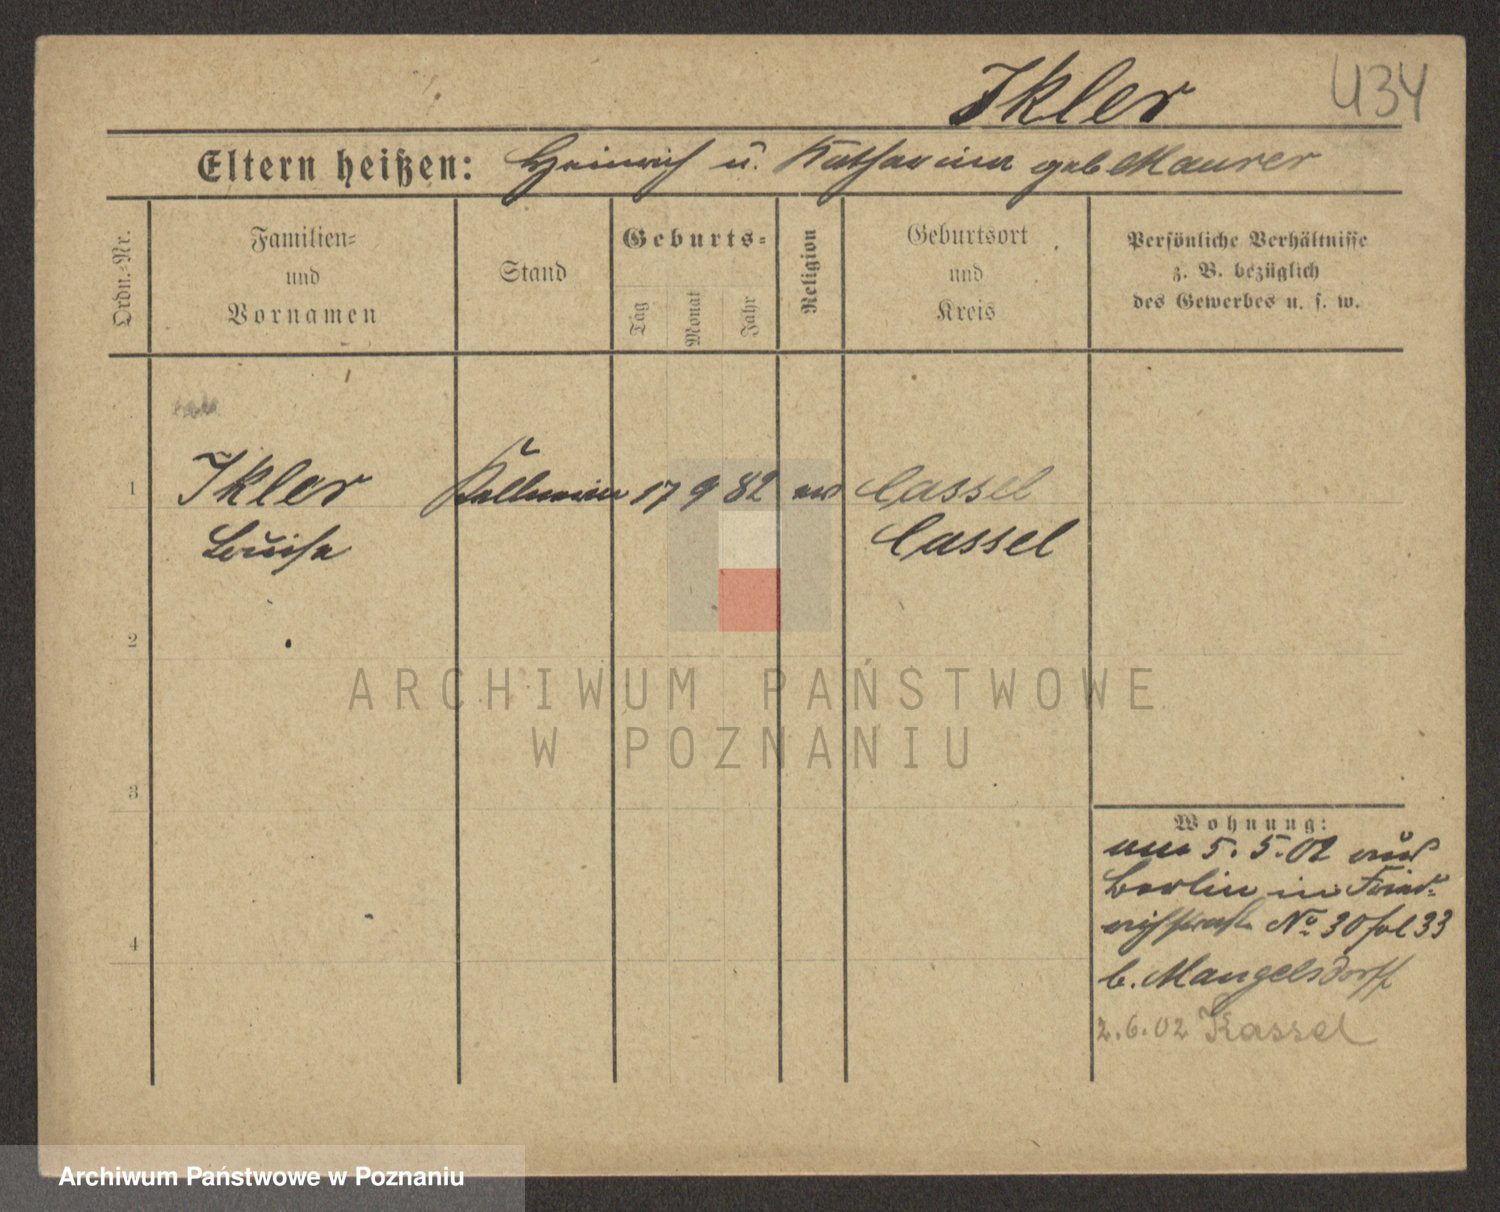 Ikler
434
Eltern heißen: Heinrich u. Katharina geb Maurer
Ordn.-Nr.
Familien-
und
Vornamen
Stand
Geburts-
Tag
Monat
Jahr
Religion
Geburtsort
und
Kreis
Persönliche Verhältnisse
z. B. bezüglich
des Gewerbes u. s. w.
1 Ikler Kellnerin 17 9 82 ev Cassel
Luise Cassel
2
3
4
ARCHIWUM PAŃSTWOWE
W POZNANIU
Wohnung:
am 5. 5. 02 aus
Berlin in Fried-
richstraße No 30 33
b. Mangelsdorff
2.6.02 Kassel
Archiwum Państwowe w Poznaniu